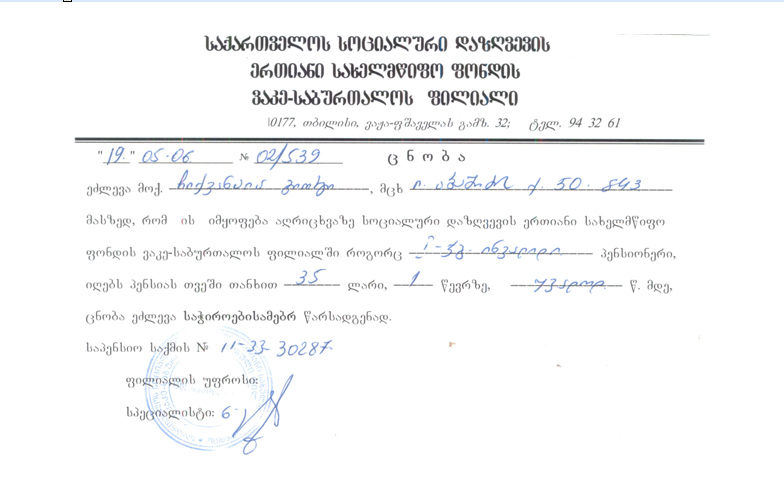 საქართველოს სოციალური დაზღვევის
ერთიანი სახელმწიფო ფონდის
ვაკე-საბურთალოს ფილიალი
0177, თბილისი, ვაჟა-ფშაველას გამზ. 32; ტელ. 94 32 61
"19" 05.06 № 02/539 ც ნ ო ბ ა
ეძლევა მოქ. , მცხ 50. 843
მასზედ, რომ ის იმყოფება აღრიცხვაზე სოციალური დაზღვევის ერთიანი სახელმწიფო
ფონდის ვაკე-საბურთალოს ფილიალში როგორც I-ჯგ. ინვალიდი პენსიონერი,
იღებს პენსიას თვეში თანხით 35 ლარი, 1 წევრზე, უვადოდ წ. მდე,
ცნობა ეძლევა საჭიროებისამებრ წარსადგენად.
საპენსიო საქმის № 11-33-30287
ფილიალის უფროსი:
სპეციალისტი: